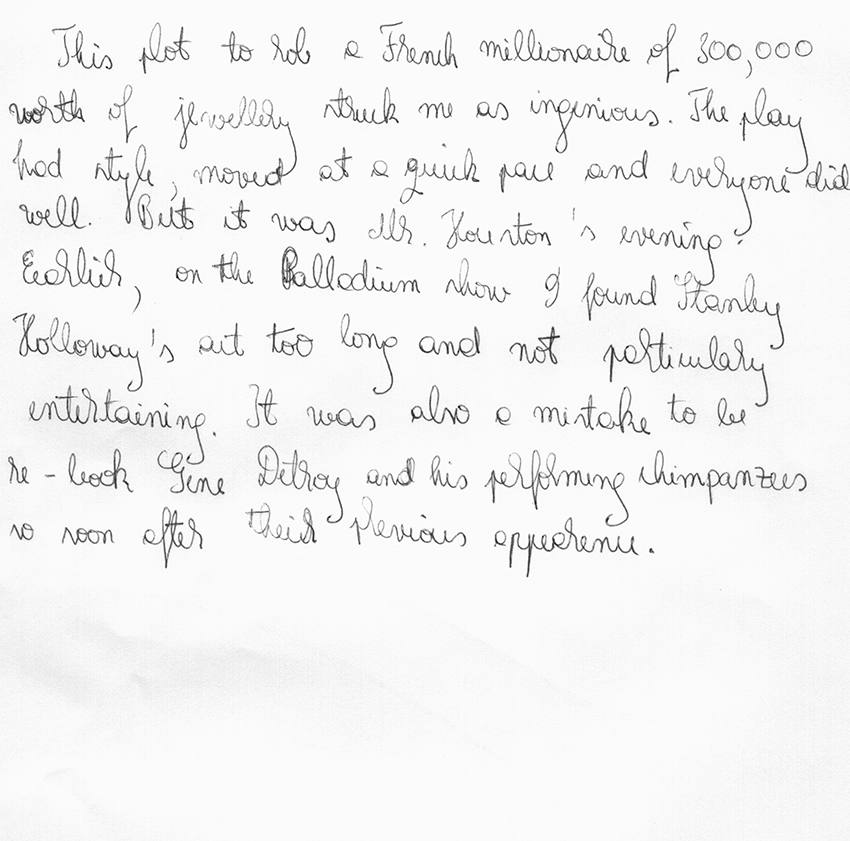 This plot to rob a French millionaire of 300,000
worth of jewellery struck me as ingenious. The play
had style, moved at a quick pace and everyone did
well. But it was Mr. Houston's evening.
Earlier, on the Palladium show I found Stanley
Holloway's act too long and not particulary
entertaining. It was also a mistake to be
re-book Gene Detroy and his performing chimpanzees
so soon after their previous appearence.